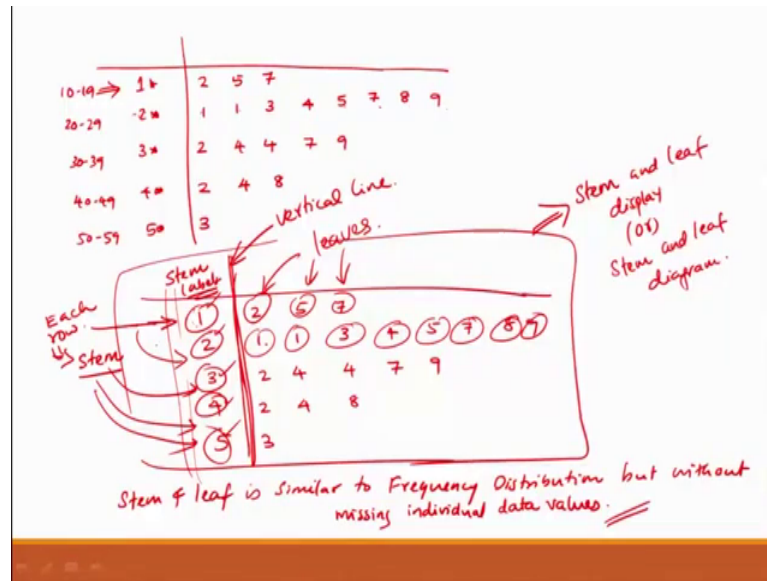 10-19 ⇒ 1* 2 5 7
20-29 2* 1 1 3 4 5 7 8 9
30-39 3* 2 4 4 7 9
40-49 4* 2 4 8
50-59 5* 3
vertical line.
leaves.
Stem and leaf
display
(OR)
Stem and leaf
diagram.
Stem
Label
Each
row.
Stem
1 2 5 7
2 1 1 3 4 5 7 8 9
3 2 4 4 7 9
4 2 4 8
5 3
Stem & leaf is similar to Frequency Distribution but without
missing individual data values.